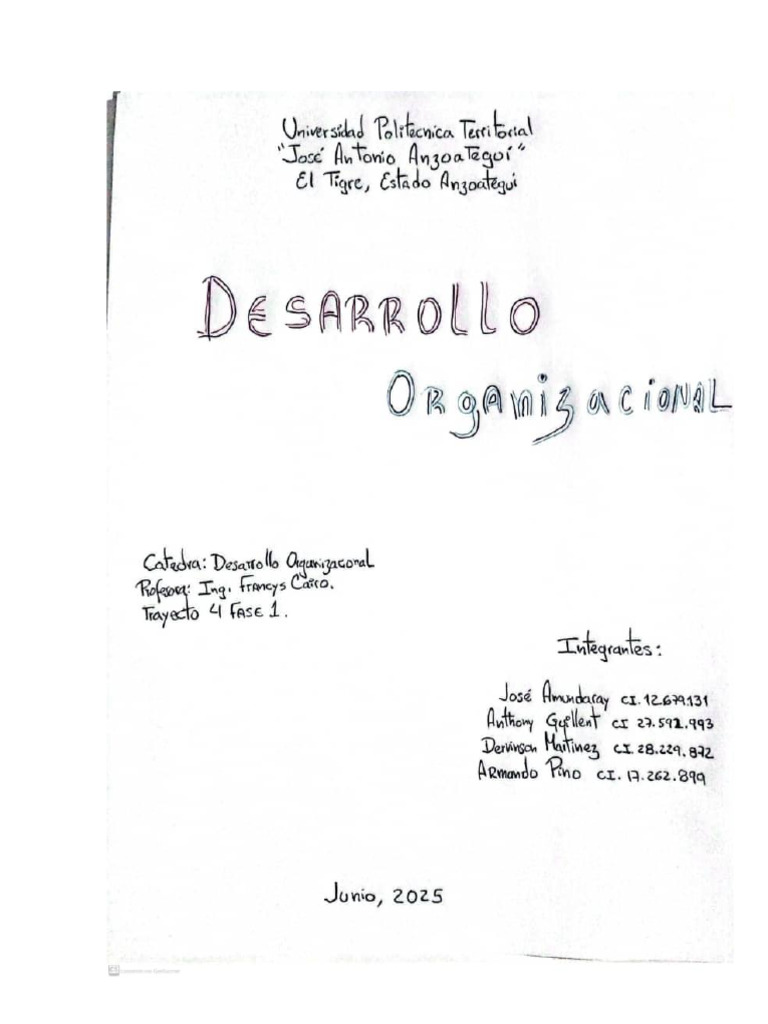 Universidad Politecnica Territorial
"José Antonio Anzoategui"
El Tigre, Estado Anzoategui
DESARROLLO
ORgANizACiONAL
Catedra: Desarrollo Organizacional
Profesora: Ing. Francys Cairo.
Trayecto 4 FASE 1.
Integrantes:
José Amundaray CI. 12.679.131
Anthony Guellent CI 27.592.993
Dervinson Martinez CI. 28.229.872
Armando Pino CI. 17.262.899
Junio, 2025